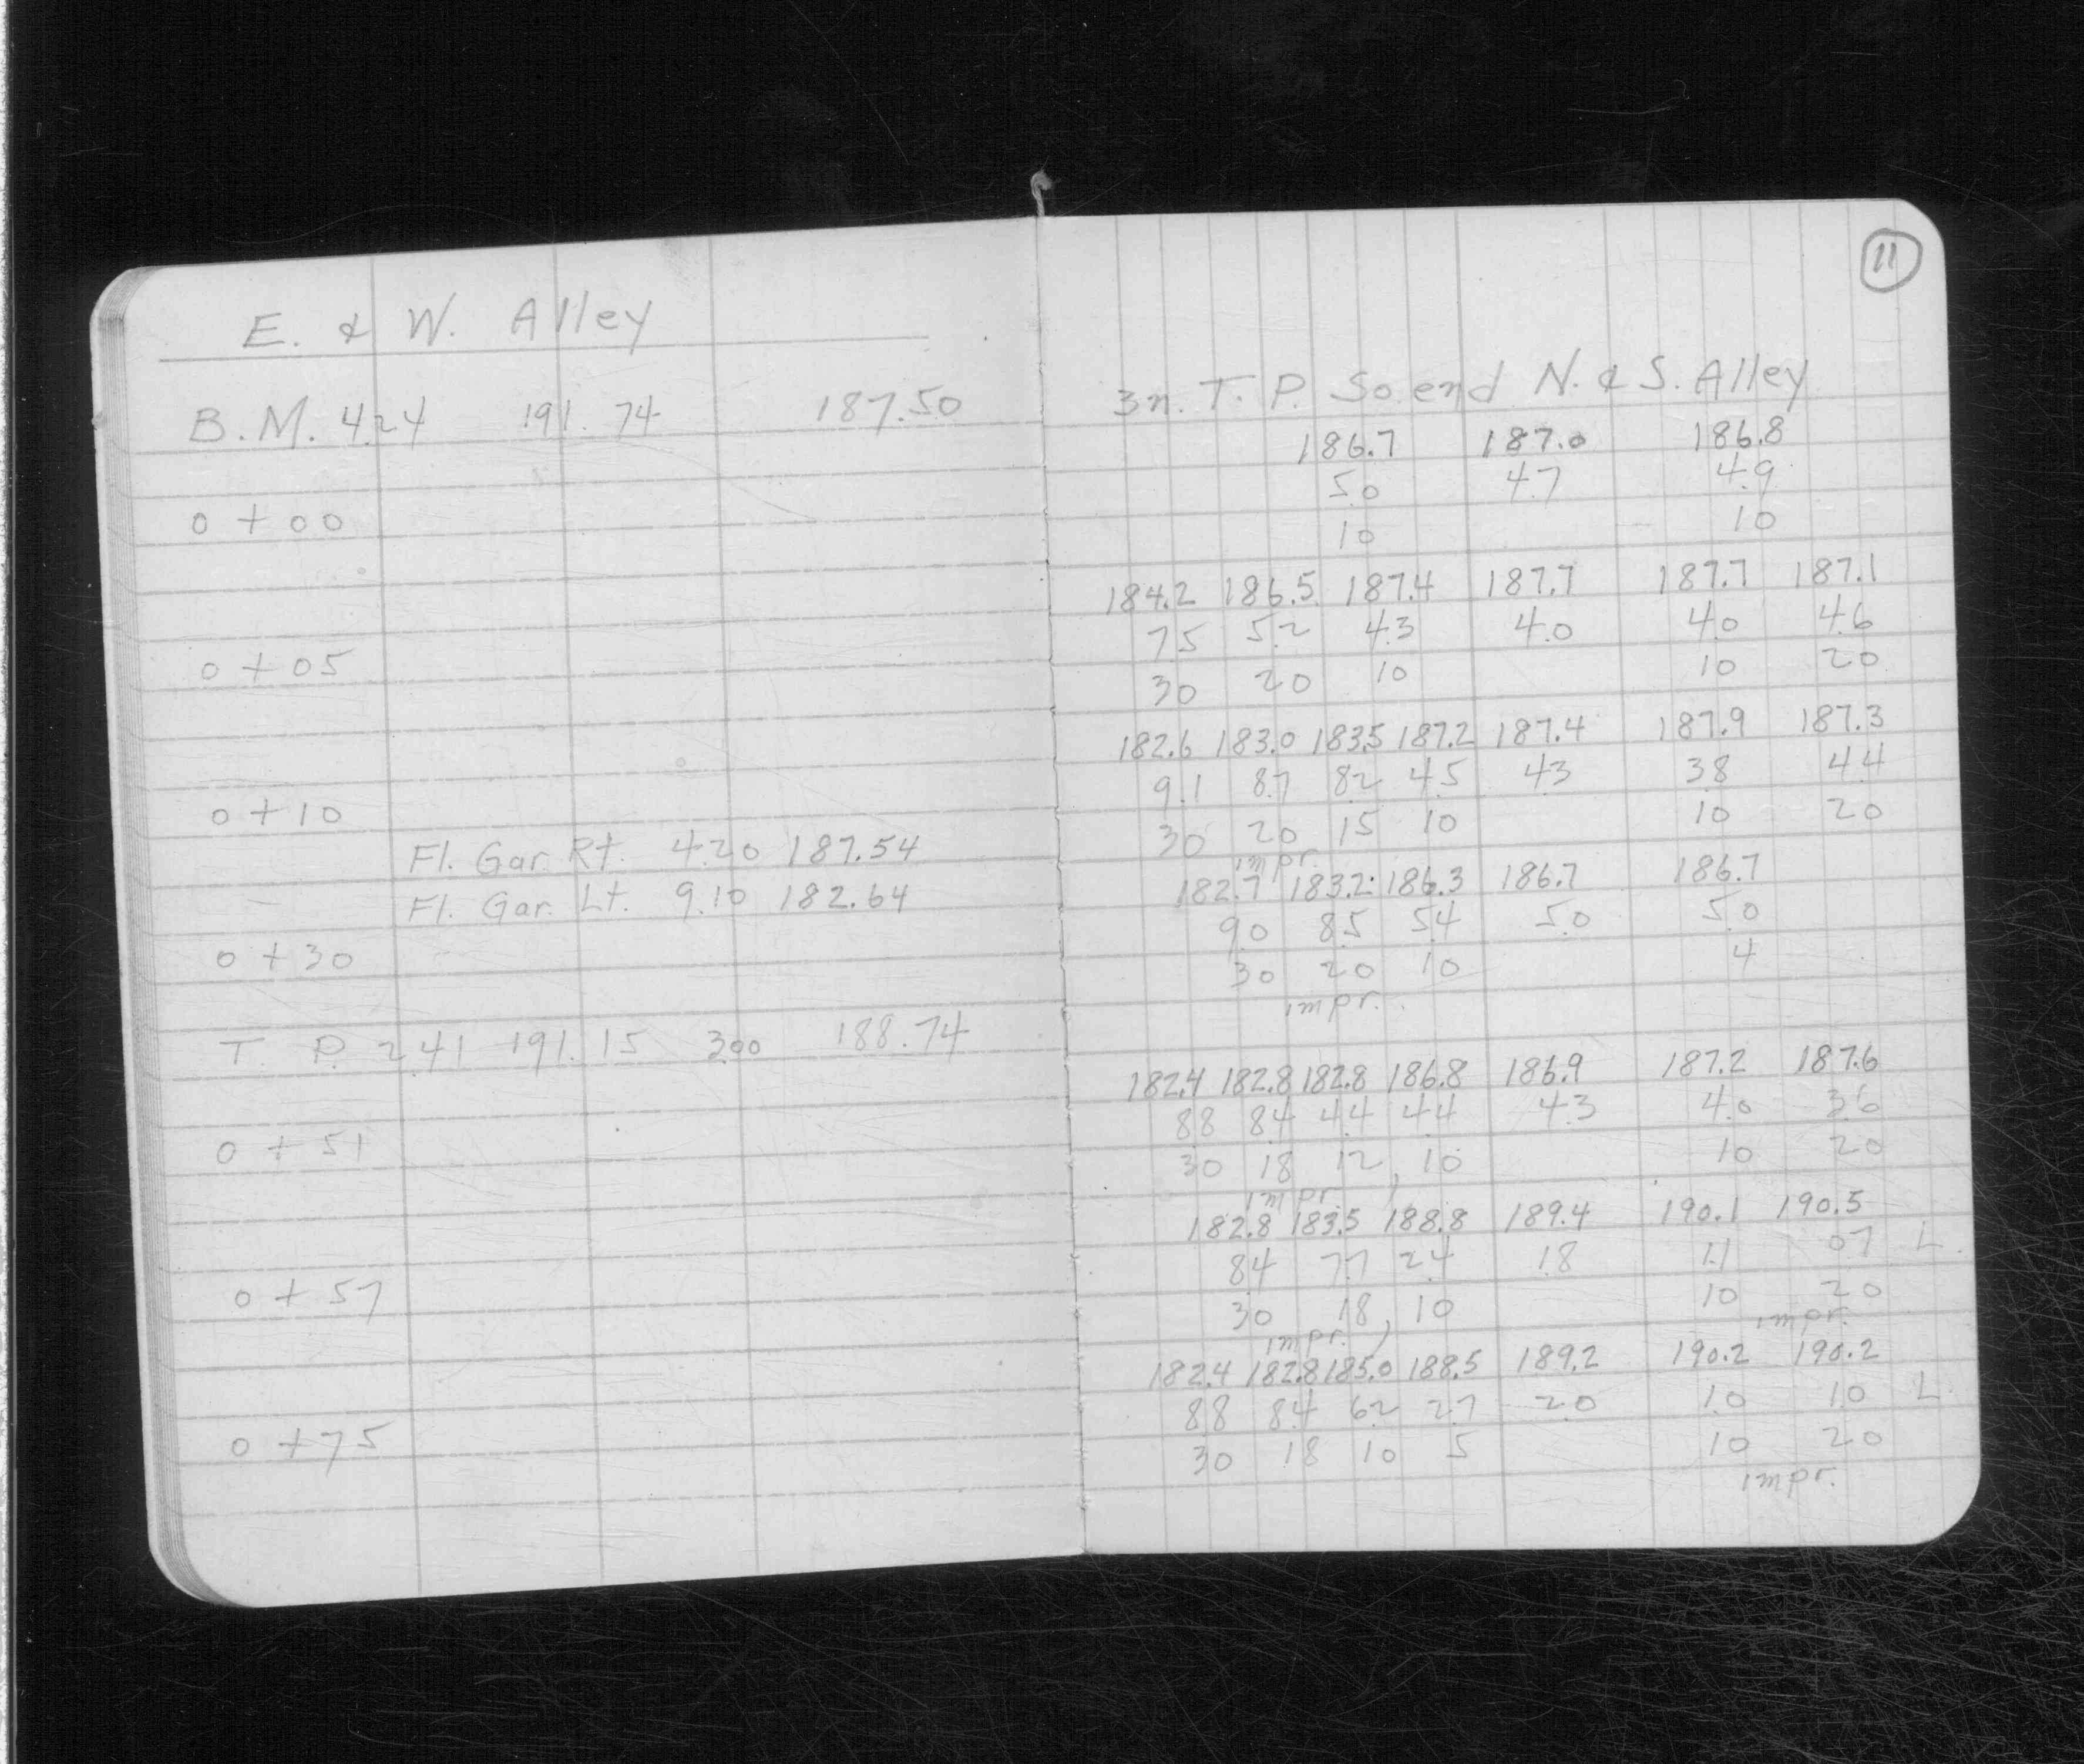 E. & W. Alley
B.M. 4.24 191.74 187.50
0+00
0+05
0+10
Fl. Gar. Rt. 4.20 187.54
Fl. Gar. Lt. 9.10 182.64
0+30
T. P. 2.41 191.15 3.00 188.74
0+51
0+57
0+75
11
3n. T. P. So. end N. & S. Alley
186.7 187.0 186.8
5.0 4.7 4.9
10 10
184.2 186.5 187.4 187.7 187.7 187.1
7.5 5.2 4.3 4.0 4.0 4.6
30 20 10 10 20
182.6 183.0 183.5 187.2 187.4 187.9 187.3
9.1 8.7 8.2 4.5 4.3 3.8 4.4
30 20 15 10 10 20
impr.
182.7 183.2 186.3 186.7 186.7
9.0 8.5 5.4 5.0 5.0
30 20 10 4
impr.
182.4 182.8 182.8 186.8 186.9 187.2 187.6
8.8 8.4 4.4 4.4 4.3 4.0 3.6
30 18 12, 10 10 20
impr.
182.8 183.5 188.8 189.4 190.1 190.5
8.4 7.7 2.4 1.8 1.1 0.7 L.
30 18, 10 10 20
impr. impr.
182.4 182.8 185.0 188.5 189.2 190.2 190.2
8.8 8.4 6.2 2.7 2.0 1.0 1.0 L
30 18 10 5 10 20
impr.